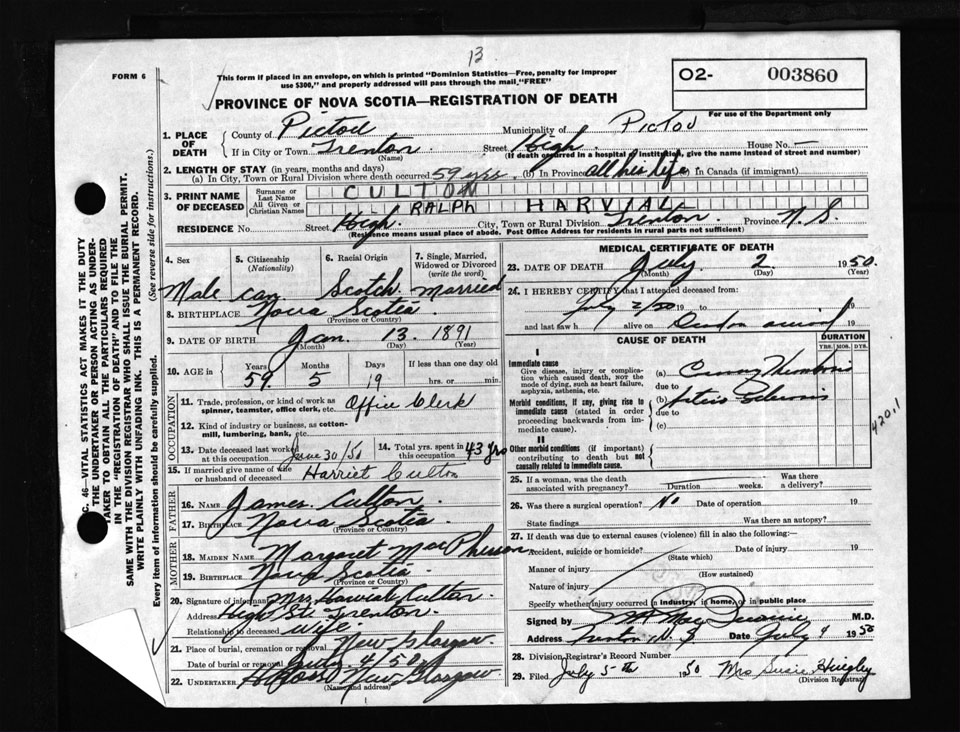 13
FORM 6
This form if placed in an envelope, on which is printed "Dominion Statistics—Free, penalty for improper
use $300," and properly addressed will pass through the mail, "FREE"
O2- 003860
For use of the Department only
PROVINCE OF NOVA SCOTIA—REGISTRATION OF DEATH
1. PLACE OF DEATH
County of Pictou Municipality of Pictou
If in City or Town Trenton Street High House No. —
(Name) (If death occurred in a hospital or institution, give the name instead of street and number)
2. LENGTH OF STAY (in years, months and days)
(a) In City, Town or Rural Division where death occurred 59 yrs. (b) In Province all his life (c) In Canada (if immigrant)
3. PRINT NAME OF DECEASED
Surname or Last Name CULTON
All Given or Christian Names RALPH HARVIALL
RESIDENCE No. Street High City, Town or Rural Division Trenton Province N.S.
(Residence means usual place of abode. Post Office Address for residents in rural parts not sufficient)
4. Sex 5. Citizenship (Nationality) 6. Racial Origin 7. Single, Married, Widowed or Divorced (write the word)
Male Can. Scotch Married
8. BIRTHPLACE Nova Scotia
(Province or Country)
9. DATE OF BIRTH Jan. 13. 1891
(Month) (Day) (Year)
10. AGE in Years Months Days If less than one day old
59 5 19 hrs. or min.
OCCUPATION
11. Trade, profession, or kind of work as spinner, teamster, office clerk, etc. Office Clerk
12. Kind of industry or business, as cotton-mill, lumbering, bank, etc.
13. Date deceased last worked at this occupation June 30/50 14. Total yrs. spent in this occupation 43 yrs
15. If married give name of wife or husband of deceased Harriet Culton
FATHER
16. NAME James Culton.
17. BIRTHPLACE Nova Scotia.
(Province or Country)
MOTHER
18. MAIDEN NAME Margaret MacPherson
19. BIRTHPLACE Nova Scotia
(Province or Country)
20. Signature of informant Mrs. Culton.
Address High St. Trenton.
Relationship to deceased Wife
21. Place of burial, cremation or removal New Glasgow.
Date of burial or removal July 4/50
22. UNDERTAKER New Glasgow
(Name and address)
MEDICAL CERTIFICATE OF DEATH
23. DATE OF DEATH July 2 1950.
(Month) (Day) (Year)
24. I HEREBY CERTIFY that I attended deceased from:
July 2/50 19 to 19
and last saw h alive on 19
CAUSE OF DEATH
DURATION
YRS. MOS. DYS.
I
Immediate cause
Give disease, injury or complication which caused death, not the mode of dying, such as heart failure, asphyxia, asthenia, etc.
(a)
due to
Morbid conditions, if any, giving rise to immediate cause (stated in order proceeding backwards from immediate cause).
(b)
due to
(c)
420.1
II
Other morbid conditions (if important) contributing to death but not causally related to immediate cause.
25. If a woman, was the death associated with pregnancy? Duration weeks. Was there a delivery?
26. Was there a surgical operation? No Date of operation 19
State findings Was there an autopsy?
27. If death was due to external causes (violence) fill in also the following:—
Accident, suicide or homicide? Date of injury 19
(State which)
Manner of injury
(How sustained)
Nature of injury
Specify whether injury occurred in industry, in home, or in public place
Signed by M.D.
Address Trenton N.S. Date July 4 1950
28. Division Registrar's Record Number
29. Filed July 5th 1950 Mrs Susie Hingley
(Division Registrar)
C. 46—VITAL STATISTICS ACT MAKES IT THE DUTY
THE UNDERTAKER OR PERSON ACTING AS UNDER-
TAKER TO OBTAIN ALL THE PARTICULARS REQUIRED
IN THE "REGISTRATION OF DEATH" AND TO FILE THE
SAME WITH THE DIVISION REGISTRAR WHO SHALL ISSUE THE BURIAL PERMIT.
WRITE PLAINLY WITH UNFADING INK. THIS IS A PERMANENT RECORD.
Every item of information should be carefully supplied. (See reverse side for instructions.)